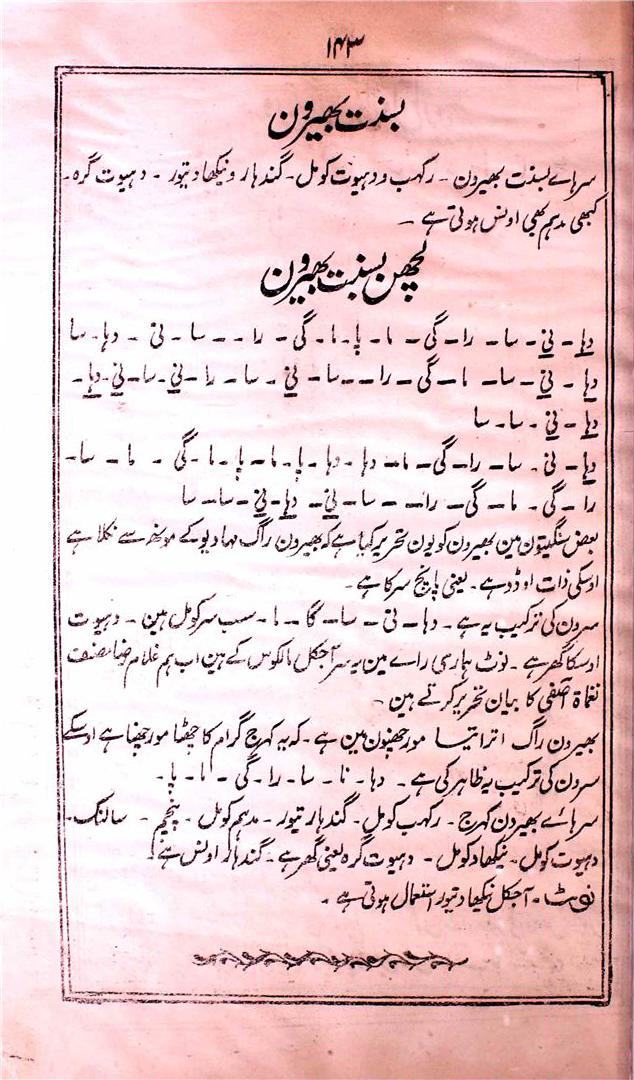 ۱۴۳
بسنت بھیرون
سرہاے بسنت بھیرون - رکھب و دہیوت کومل - گندہار و نیکھاد تیور - دہیوت گرہ -
کبھی مدہم بھی اونس ہوتی ہے -
لچھن بسنت بھیرون
دہا - نی - سا - را - گی - ما - پا - ما - گی - را - - سا - نی - دہا - سا
دہا - نی - سا - ما - گی - را - - سا - نی - سا - را - نی - سا - نی - دہا -
دہا - نی - سا - سا
دہا - نی - سا - را - گی - ما - دہا - دہا - پا - ما - پا - ما - گی - ما - سا -
را - گی - ما - گی - را - - سا - نی - دہا - نی - سا - سا
بعض سنگیتون مین بھیرون کو یون تحریر کیا ہے کہ بھیرون راگ مہادیو کے مونھ سے نکلا ہے
اوسکی ذات اوڈو ہے - یعنی پانچ سر کا ہے -
سرون کی ترکیب یہ ہے - دہا - نی - سا - گا - ما - سب سر کومل ہین - دہیوت
اوسکا گھر ہے - نوٹ ہماری راے مین یہ سر آجکل مالکوس کے ہین اب ہم غلام رضا مصنف
نغماۃ آصفی کا بیان تحریر کرتے ہین -
بھیرون راگ اتراتیا مورچھنون مین ہے - کہ یہ کہرج گرام کا چھٹا مورچھنا ہے اوسکے
سرون کی ترکیب یہ ظاہر کی ہے - دہا - نا - سا - را - گی - ما - پا -
سرہاے بھیرون کہرج - رکھب کومل - گندہار تیور - مدہم کومل - پنچم - سالنگ -
دہیوت کومل - نیکھاد کومل - دہیوت گرہ یعنی گھر ہے - گندہار اونس ہے
نوٹ - آجکل نکھاد تیور استعمال ہوتی ہے -